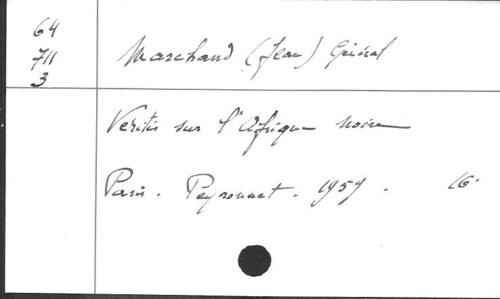 64
711
3
Marchand (Jean) Général
Vérités sur l'Afrique noire
Paris. Peyronnet. 1959. 16°